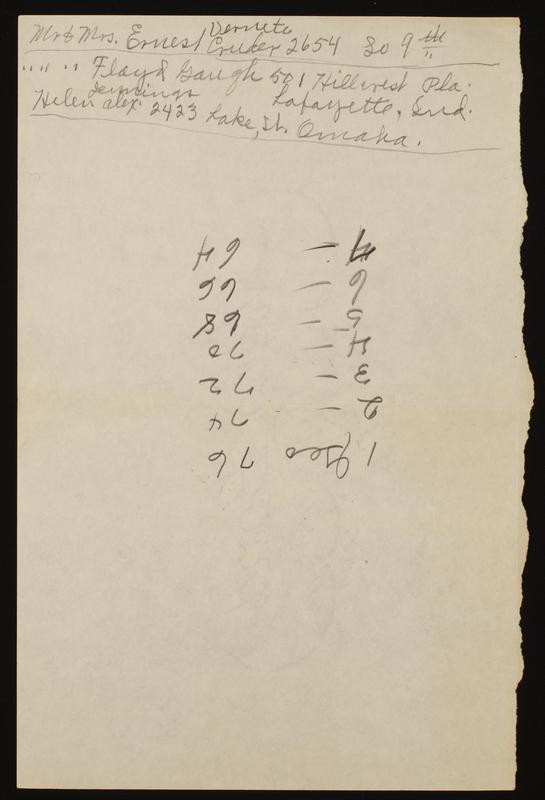 Verneta
Mr & Mrs. Ernest 2654 So 9 th
" " " " Floyd Gaugh 501 Hillcrest Pla.
Jennings Lafayette, Ind.
Helen Alex 2423 Lake, St. Omaha.
1 Geo 76
2 – 74
3 – 72
4 – 70
5 – 68
6 – 66
– 64